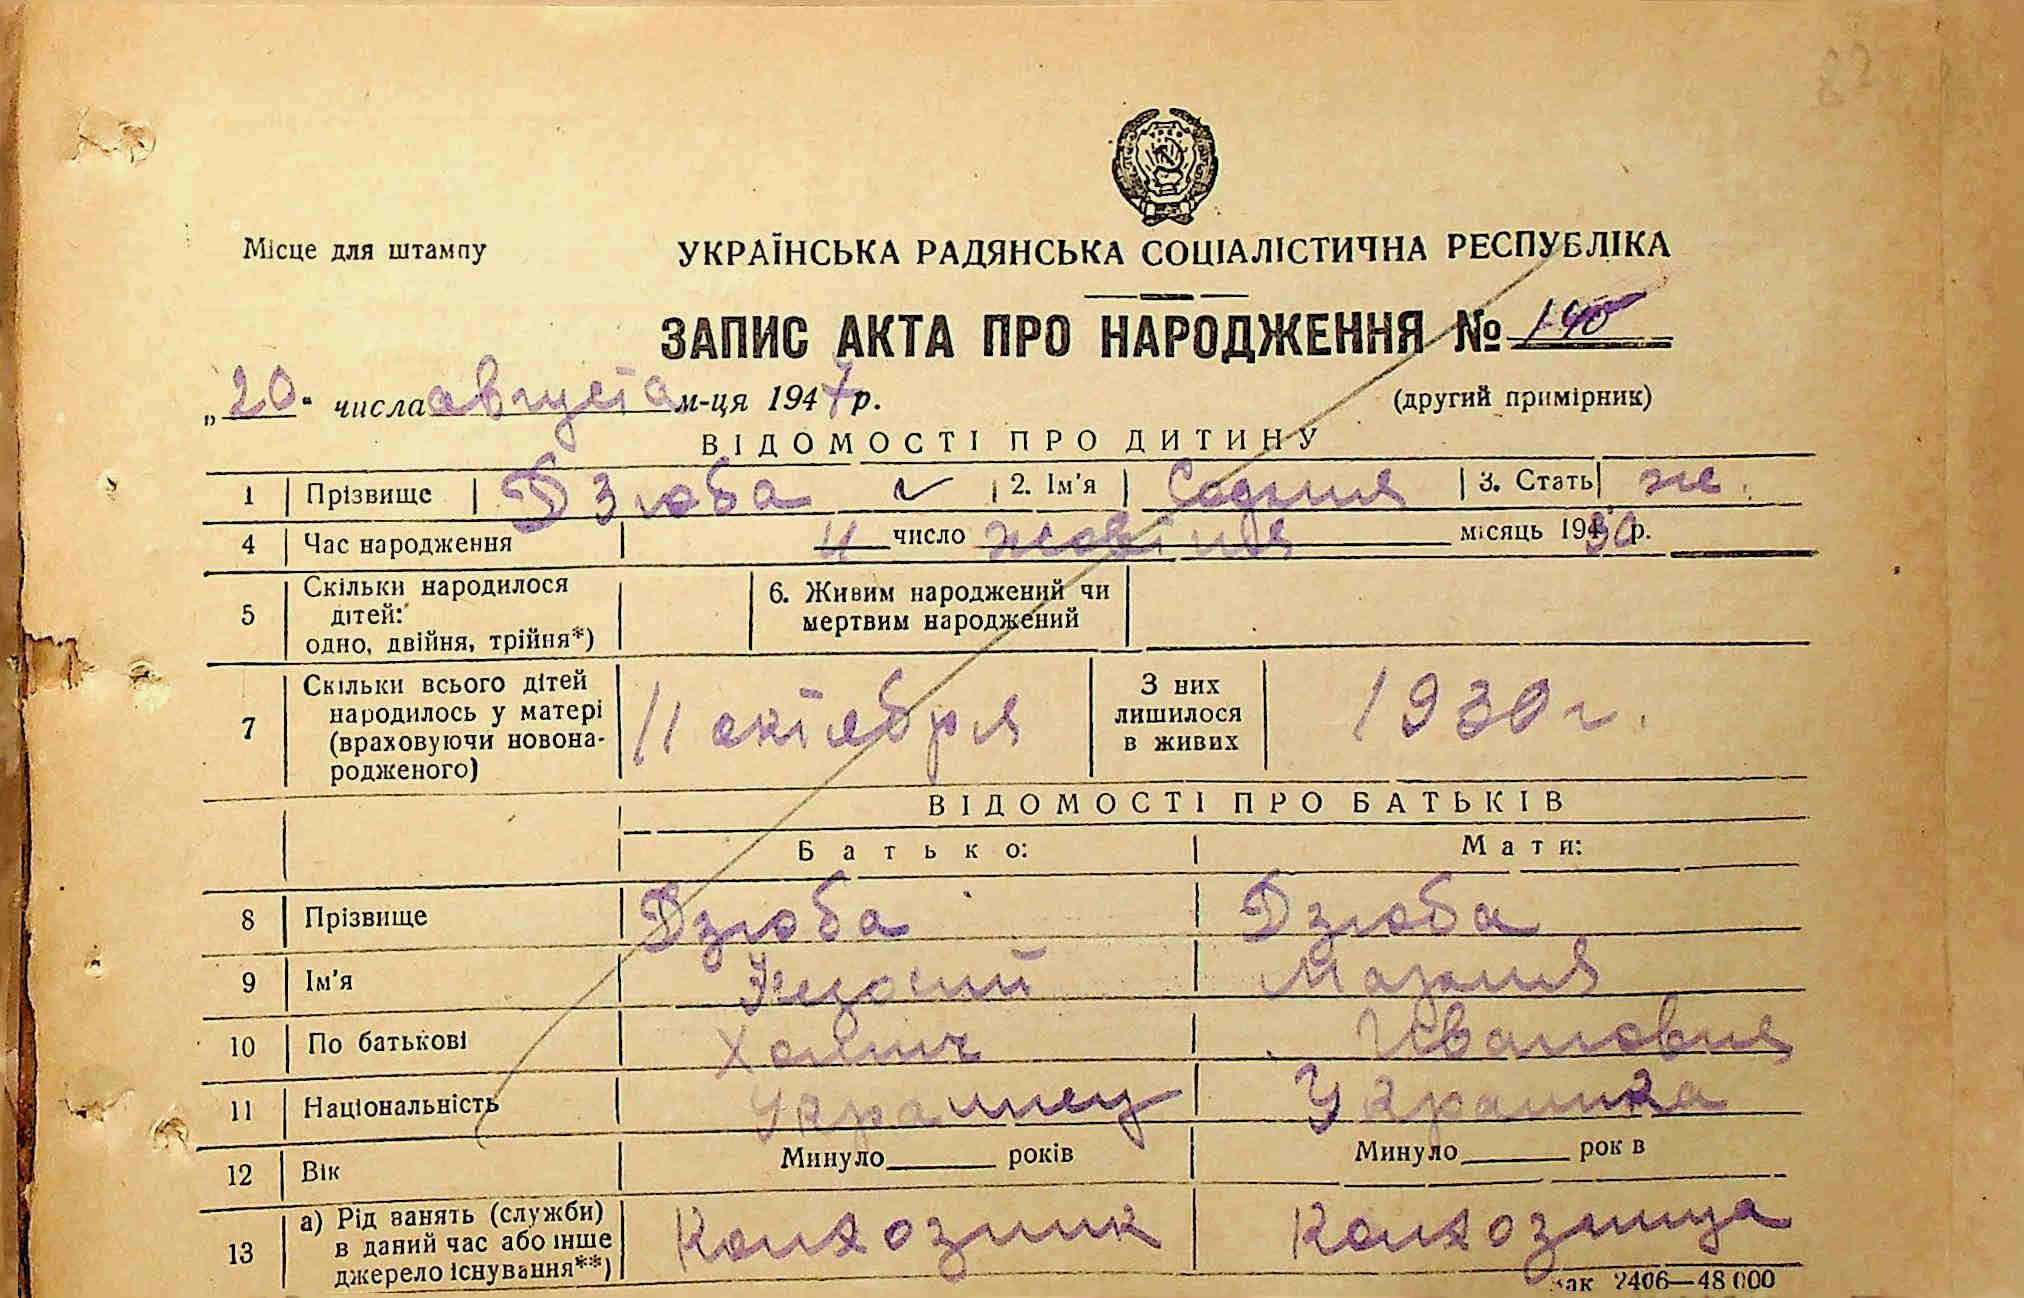 27
Місце для штампу
УКРАЇНСЬКА РАДЯНСЬКА СОЦІАЛІСТИЧНА РЕСПУБЛІКА
ЗАПИС АКТА ПРО НАРОДЖЕННЯ № 140
„20" числа августа м-ця 1947 р.
(другий примірник)
ВІДОМОСТІ ПРО ДИТИНУ
1 Прізвище Дзюба 2. Ім'я София 3. Стать ж.
4 Час народження 11 число жовтня місяць 1930 р.
5 Скільки народилося дітей: одно, двійня, трійня*)
6. Живим народжений чи мертвим народжений
7 Скільки всього дітей народилось у матері (враховуючи новонародженого) 11 октября
З них лишилося в живих 1930 г.
ВІДОМОСТІ ПРО БАТЬКІВ
Батько: Мати:
8 Прізвище Дзюба Дзюба
9 Ім'я
10 По батькові Ивановна
11 Національність Украинец Украинка
12 Вік Минуло______ років Минуло______ рок в
13 а) Рід занять (служби) в даний час або інше джерело існування**) Колхозник Колхозница
зак 2406—48 000